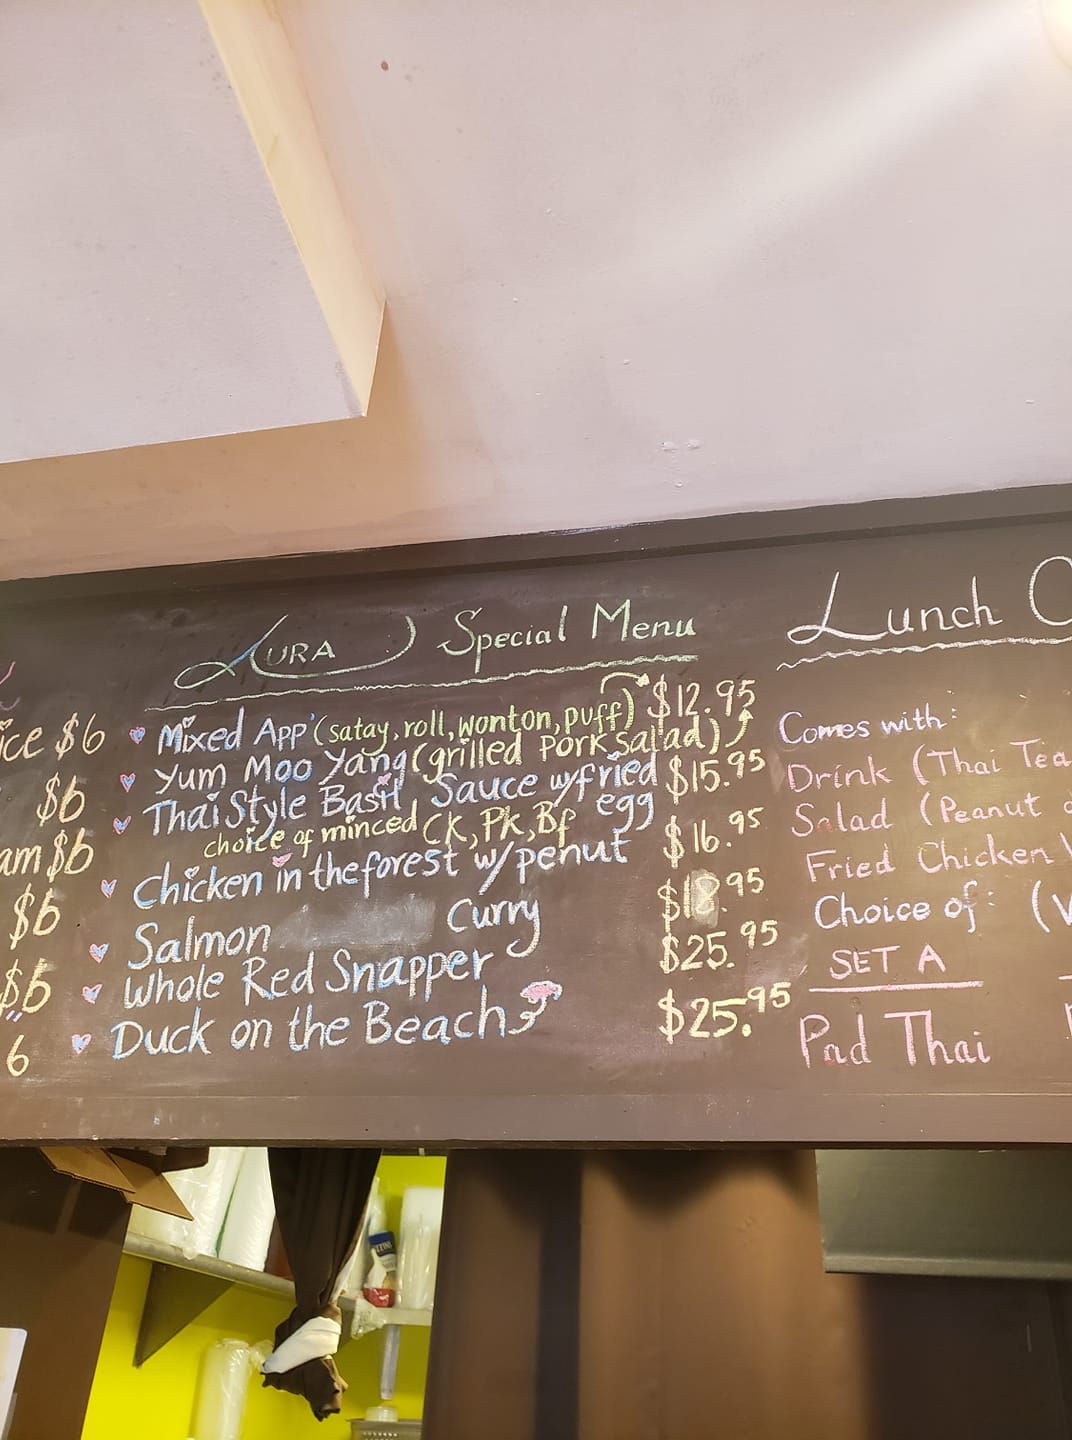 ice $6
$6
am $6
$6
$6
6
Aura Special Menu
Mixed App' (satay, roll, wonton, puff) $12.95
Yum Moo Yang (grilled Pork salad)
Thai Style Basil Sauce w/fried egg $15.95
choice of minced CK, Pk, Bf
Chicken in the forest w/ penut Curry $16.95
Salmon $18.95
Whole Red Snapper $25.95
Duck on the Beach $25.95
Lunch
Comes with:
Drink (Thai Tea
Salad (Peanut
Fried Chicken
Choice of: (
SET A
Pad Thai